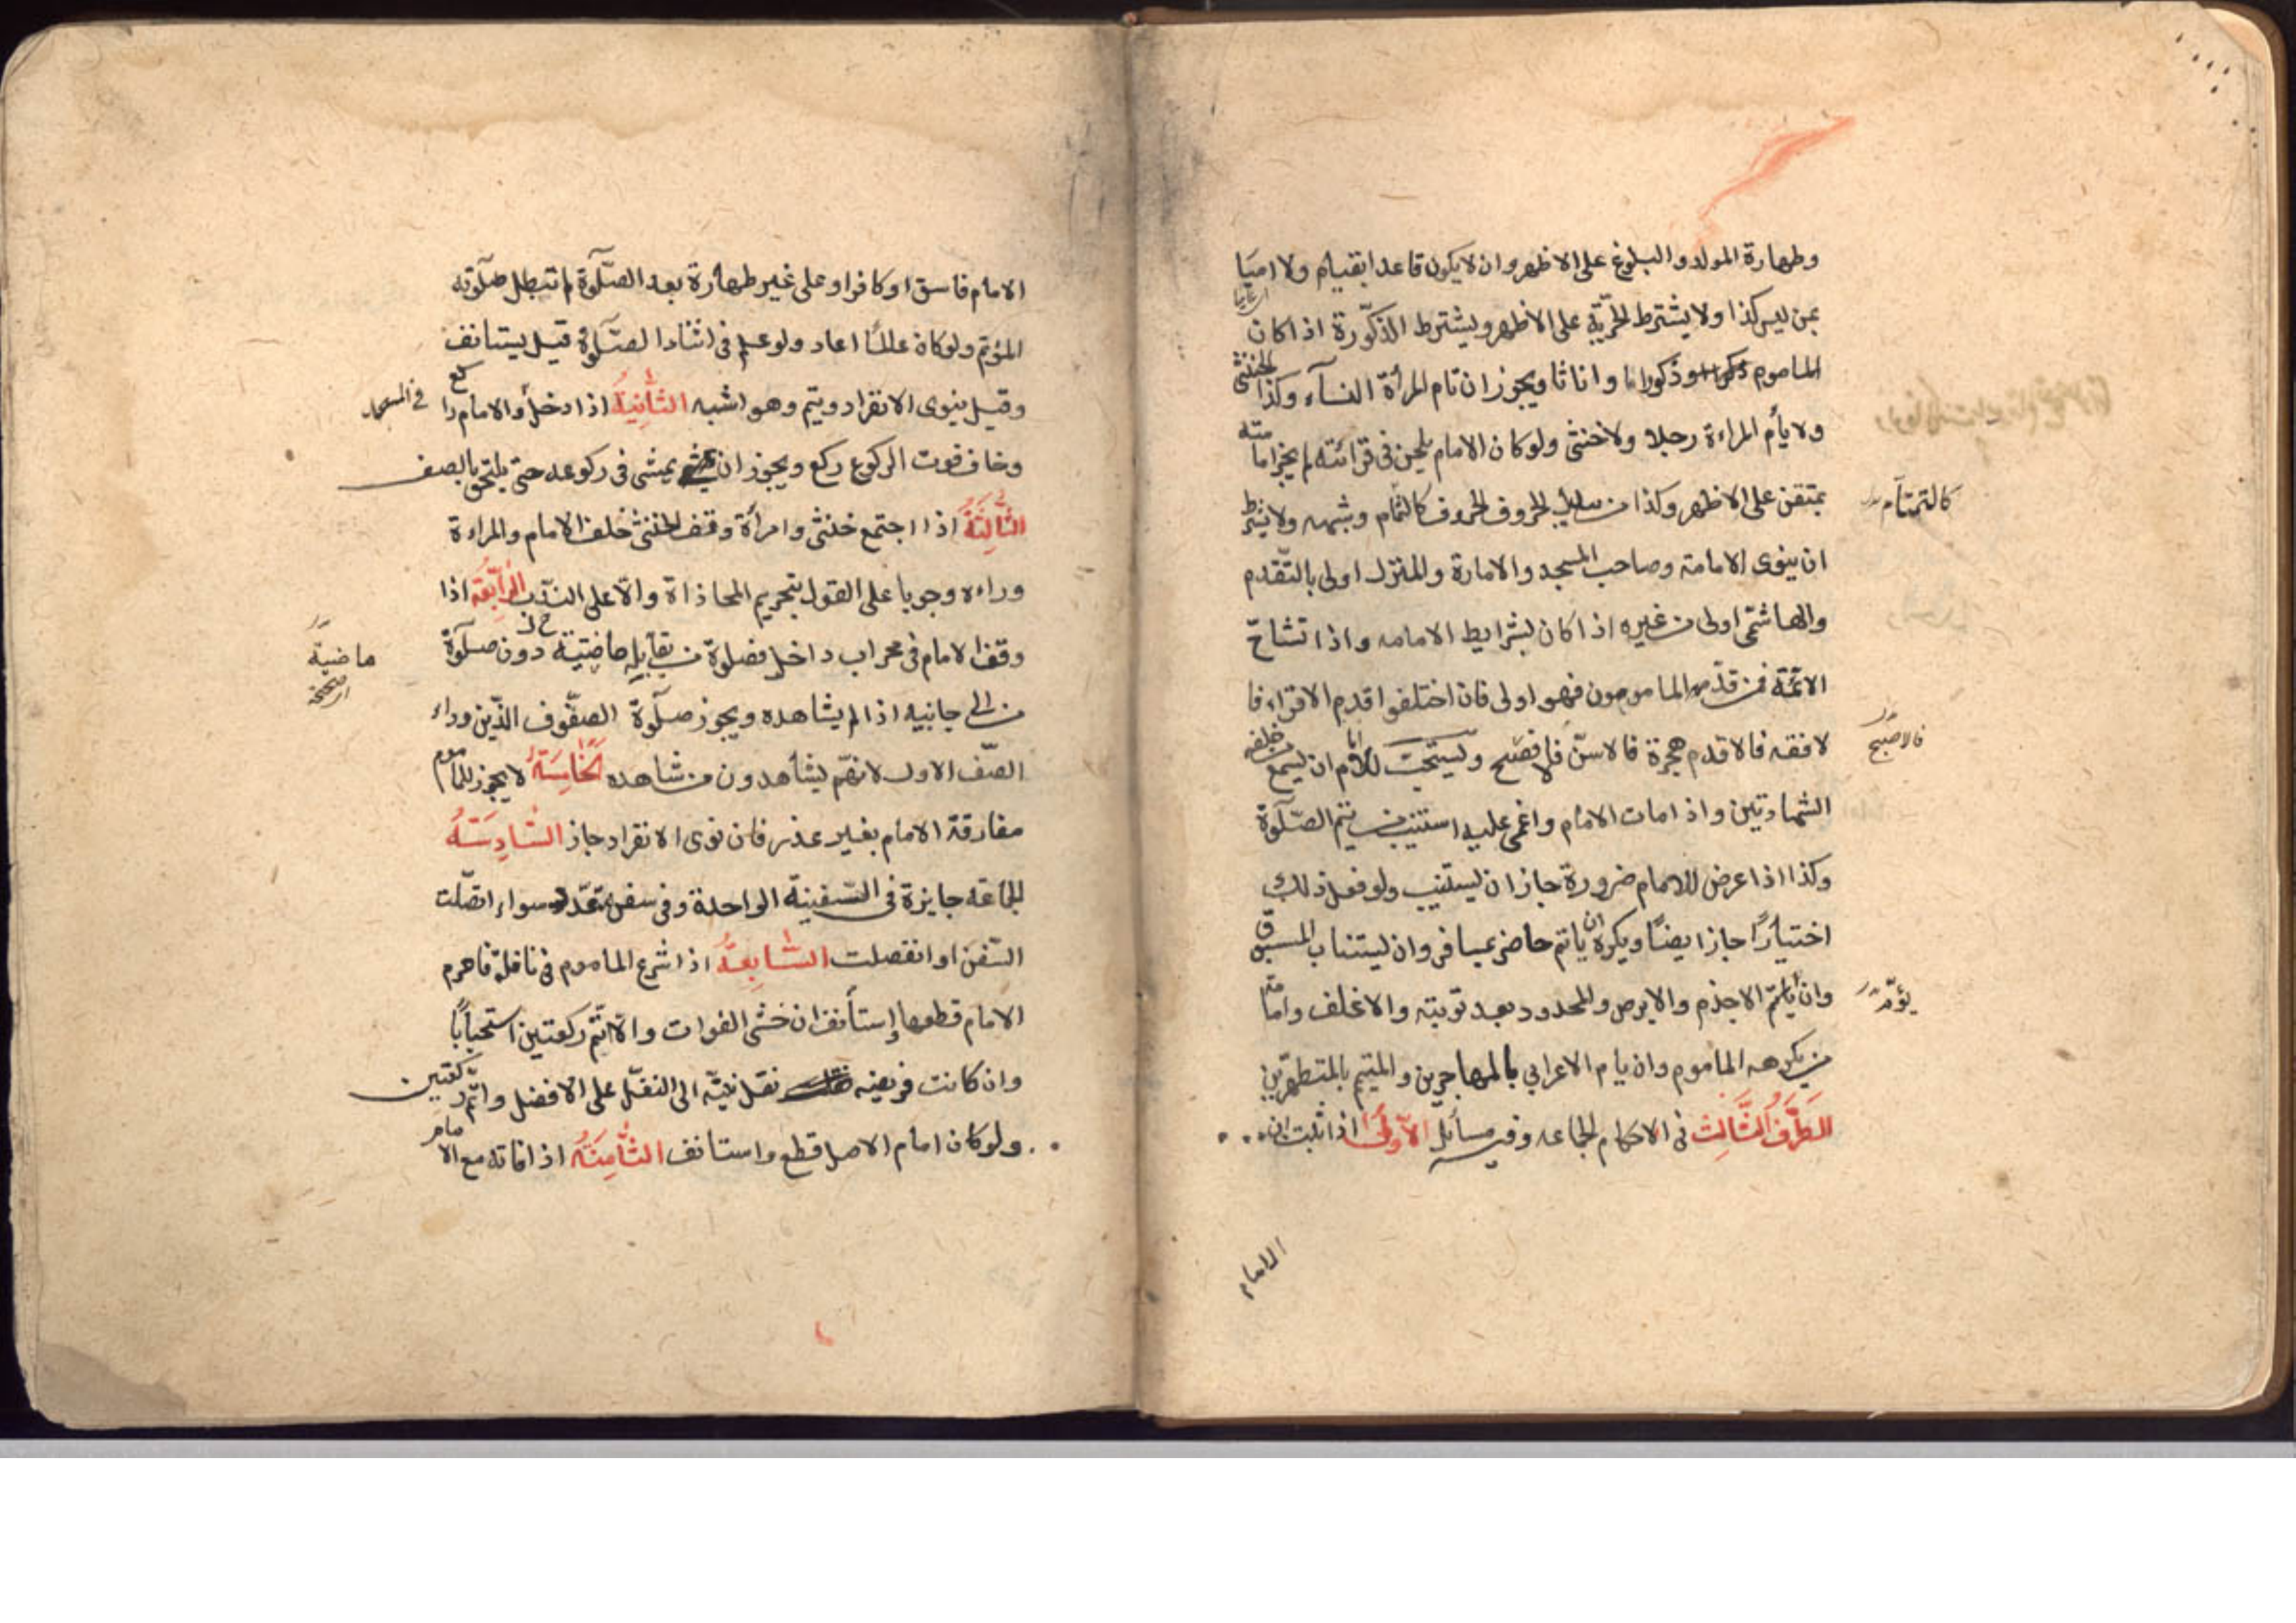 وطهارة المولد والبلوغ على الاظهر وان لا يكون قاعدا بقيام ولا اميا
بمن ليس كذا ولا يشترط الحرّيّة على الاظهر ويشترط الذكورة اذا كان
الماموم وذكورا وانا ثا ويجوز ان تام المرأة النسآء وكذا الخنثى
ولا يأم المراءة رجلا ولا خنثى ولو كان الامام يلحن فى قرائته لم يجز امامته
بمتقن على الاظهر وكذا من يبدل الحروف كالتمام وشبهه ولا يشترط
كالتمتآم
ان ينوى الامامة وصاحب المسجد والامارة والمنزل اولى بالتّقدم
والهاشمى اولى من غيره اذا كان بشرايط الامامه واذا تشاحّ
الائمّة فمن قدّمه المامومون فهو اولى فان اختلفوا قدم الاقراء فا
لافقه فالاقدم هجرة فالاسنّ فالافصح ويستحبّ للامام ان يسمع من خلفه
فالاصبح
الشهادتين واذا مات الامام واغمى عليه استنيب من يتم الصّلوة
وكذا اذا عرض للامام ضرورة جاز ان يستنيب ولو فعل ذلك
اختيارًا جاز ايضًا ويكره ان ياتم حاضر بمسافر وان يستناب المسبوق
وان يأتمّ الاجذم والابرص والمحدود بعد توبته والاغلف وامامة
يؤمّ
من يكرهه الماموم وان يام الاعرابي بالمهاجرين والمتيمم بالمتطهرين
الطَّرَفُ الثَّالِث فى الاحكام الجماعه وفيه مسائل الاُولَى اذا ثبت ان
الامام
الامام فاسق او كافر او على غير طهارة بعد الصّلوة لم تبطل صلوته
المؤتم ولو كان عالمًا اعاد ولو علم فى اثناء الصّلوة قيل يستانف
وقيل ينوى الانفراد ويتم وهو اشبه الثَّانِيَةُ اذا دخل والامام راكع
فى المسجد
وخاف فوت الركوع ركع ويجوز ان يمشى فى ركوعه حتى يلتحق بالصف
الثَّالِثَةُ اذا اجتمع خنثى وامرأة وقف الخنثى خلف الامام والمراءة
وراءه وجوبا على القول بتحريم المحاذاة والّا على الندب الرَّابِعَةُ اذا
وقف الامام فى محراب داخل فصلوة من يقابله ماضيّة دون صلوة
ماضيّة
من الى جانبيه اذا لم يشاهده ويجوز صلوة الصفوف الّذين وراء
الصّف الاول لانهّم يشاهدون من شاهده الخَامِسَةُ لا يجوز للماموم
مفارقة الامام بغير عذر فان نوى الانفراد جاز السَّادِسَةُ
الجماعة جايزة فى السّفينة الواحدة وفى سفن متعدّد سواء اتصّلت
السّفن او انفصلت السَّابِعَةُ اذا شرع الماموم فى نافلة فاحرم
الامام قطعها إستأنف ان خشى الفوات والّا اتّم ركعتين استحبابًا
وان كانت فريضه نقل نيّته الى النفل على الافضل واتّم ركعتين
ولو كان امام الاصل قطع واستانف الثَّامِنَةُ اذا فاته مع الامام